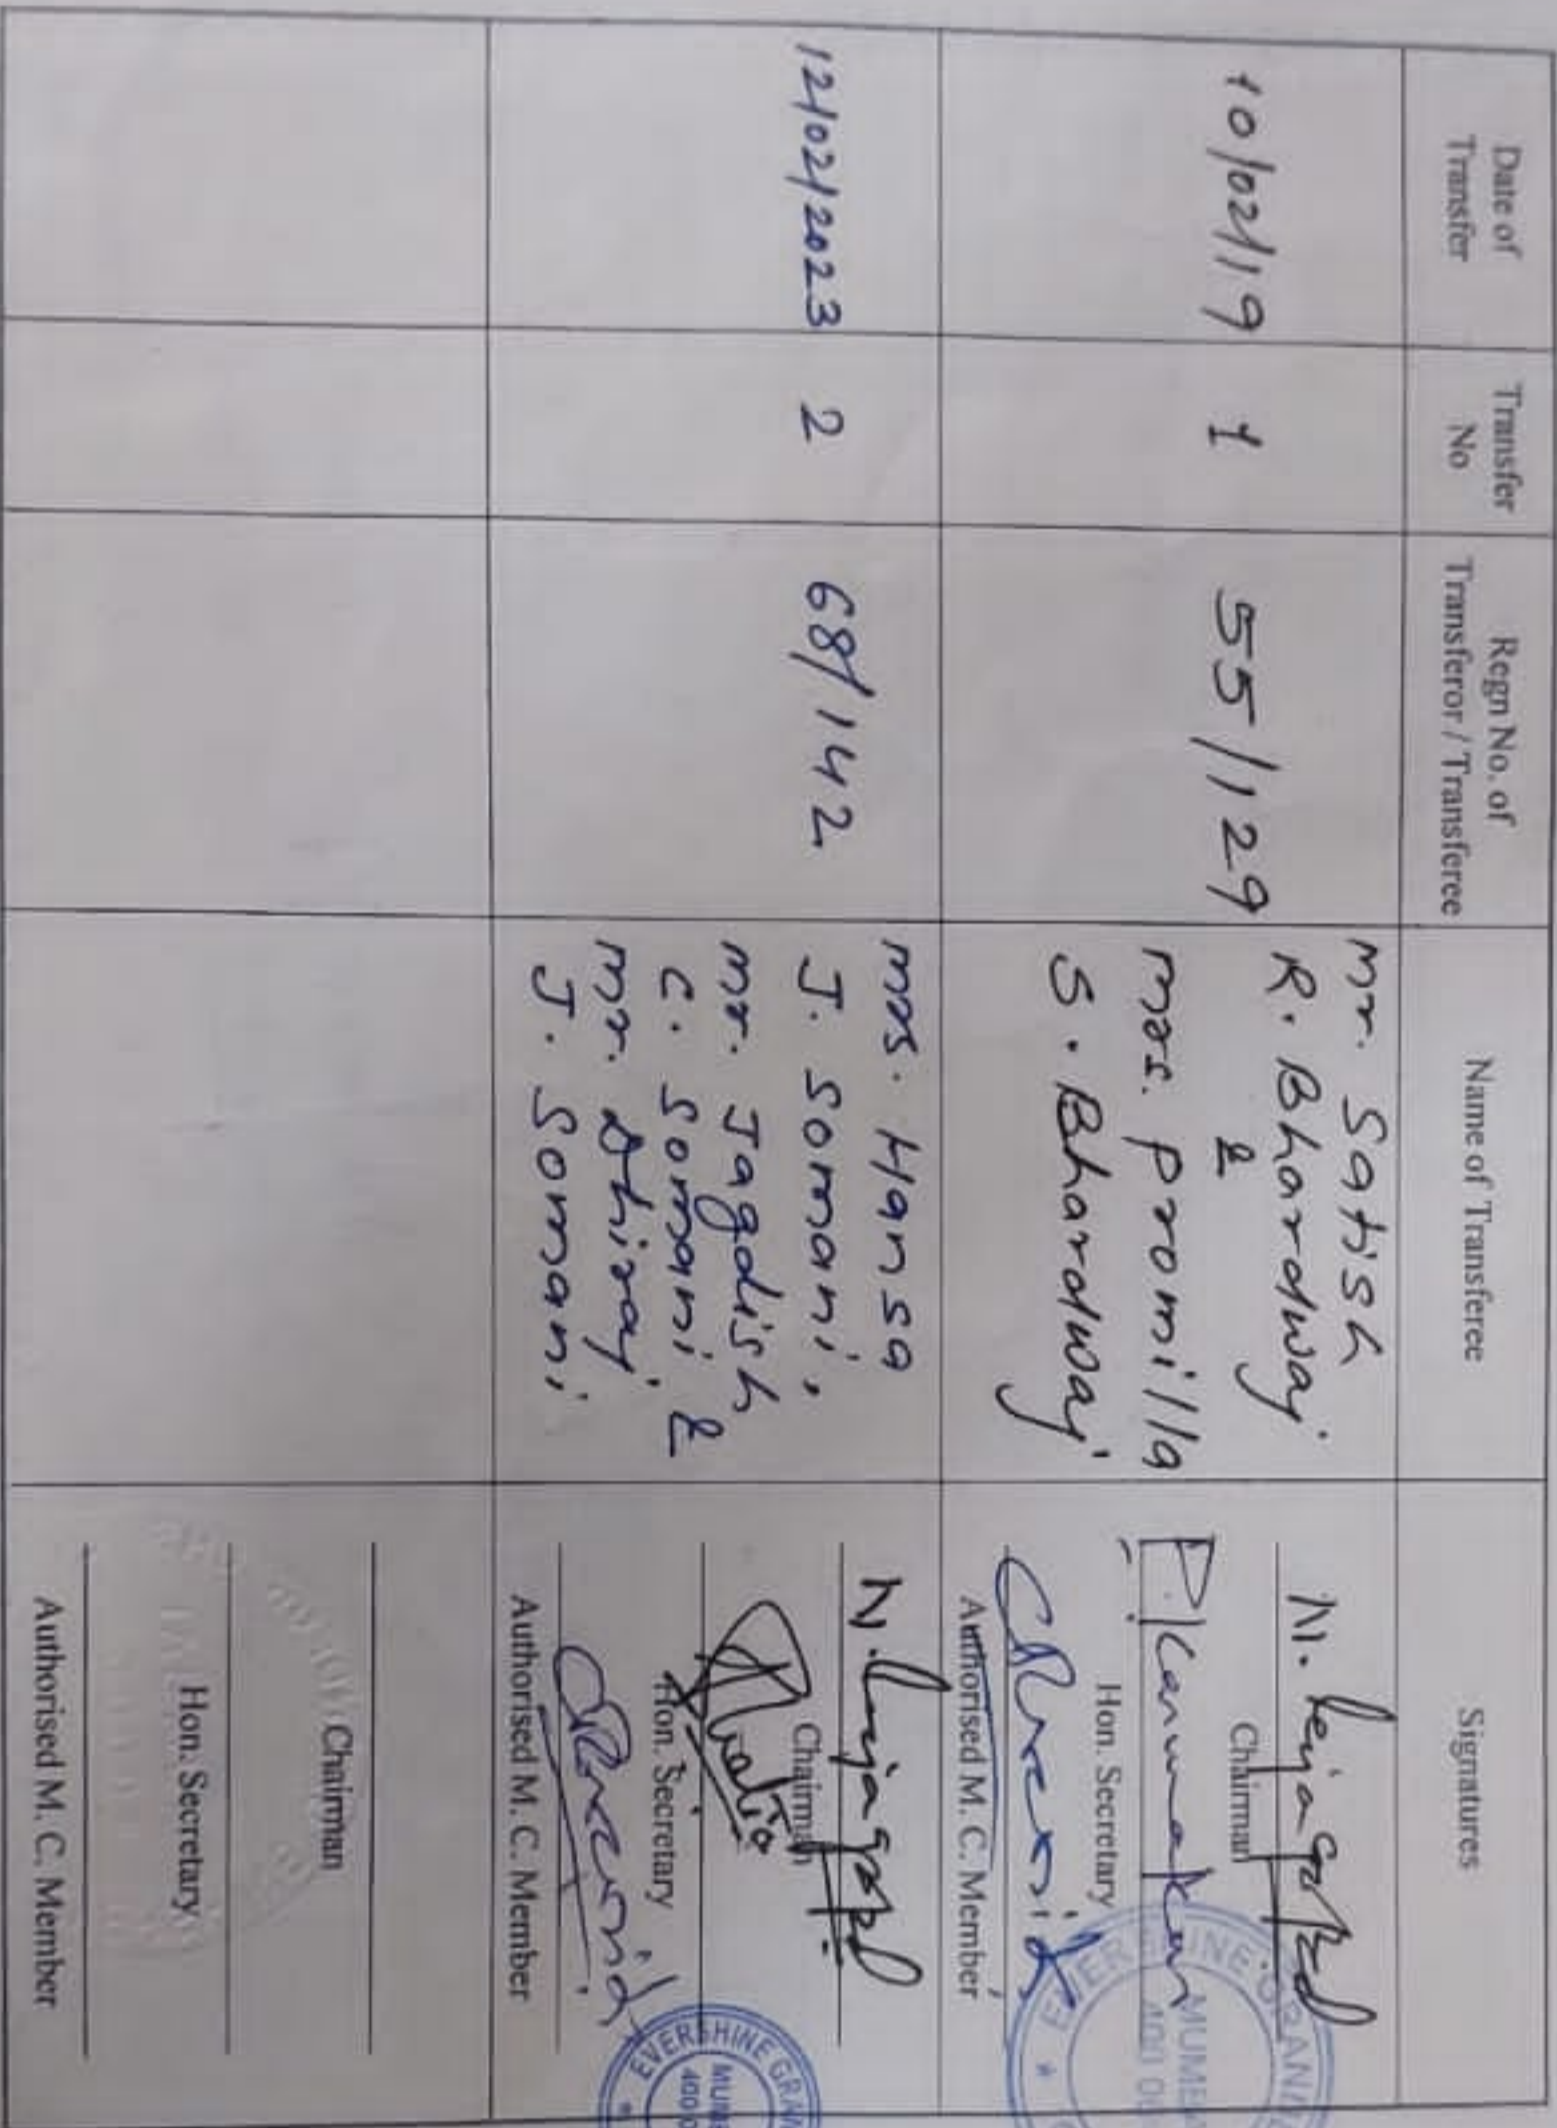 Date of
Transfer
Transfer
No
Regn No. of
Transferor / Transferee
Name of Transferee
Signatures
10/02/19
1
55/129
Mr. Satish
R. Bhardwaj
&
Mrs. Promilla
S. Bhardwaj
Chairman
Hon. Secretary
Authorised M. C. Member
EVERSHINE GRAND
MUMBAI
12/02/2023
2
68/142
Mrs. Hansa
J. Somani,
Mr. Jagdish
C. Somani &
Mr. Dhiraj
J. Somani
Chairman
Hon. Secretary
Authorised M. C. Member
EVERSHINE GRAN
Chairman
Hon. Secretary
Authorised M. C. Member